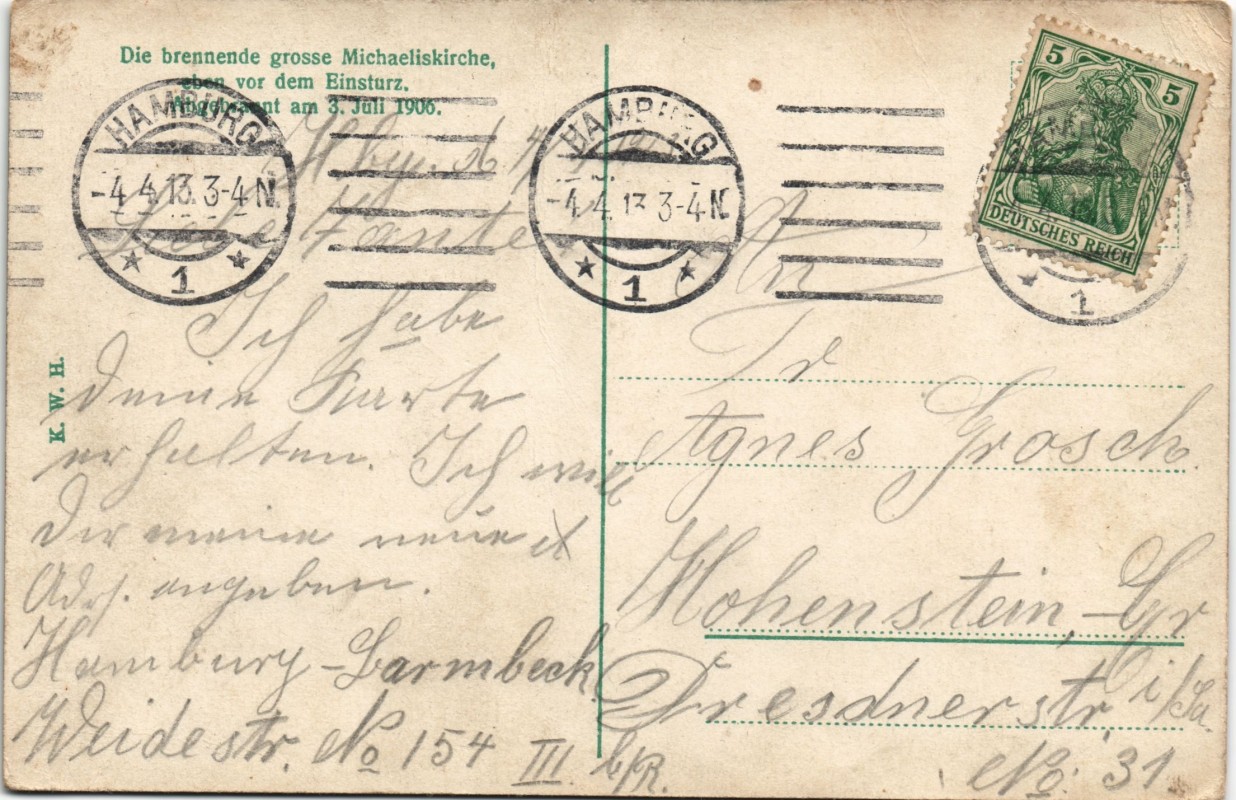 Die brennende grosse Michaeliskirche,
eben vor dem Einsturz.
Abgebrannt am 3. Juli 1906.
HAMBURG
-4.4.13. 3-4 N.
* 1 *
HAMBURG
-4.4.13 3-4 N.
* 1 *
5 5
DEUTSCHES REICH
* 1
K. W. H.
Hbg. d 4
Liebe Tante
Ich habe
deine Karte
erhalten. Ich will
dir meine neue
Adr. angeben.
Hamburg-Barmbeck
Weidestr. No 154 III b/R.
An
Fr
Agnes Grosch.
Hohenstein,-Er
Dresdnerstr. i/Sa.
No. 31